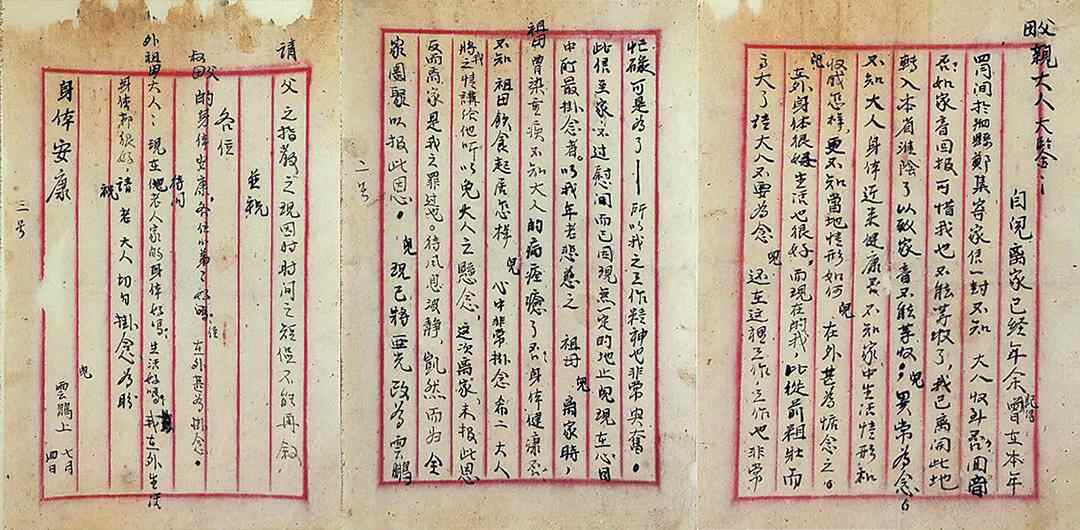 父母親大人大鑒：
自兒离家已經年余，曾在本年
四月間於泗縣鄭集寄家信一封不知 大人收到否？回音
否？如家音回报可惜我也不能等收了，我已离開此地
轉入本省淮陰了以致家音不能等收，兒異常為念。
不知大人身体近来健康否？不知家中生活情形和
收成怎樣，更不知當地情形如何，兒在外甚為惦念之。
兒在外身体很好，生活也很好，而現在的我，比從前粗壯而
高大了，請大人不要為念。兒還在这裡工作，工作也非常
忙碌可是為了——所以我之工作精神也非常興奮。
此信至家不过慰問而已因現無一定的地止，兒現在心目
中所最掛念者，以我年老悲慈之 祖母，兒离家時，
祖母曾染重疾不知大人的病症癒了否？身体健康否？
不知 祖母飲食起居怎樣，兒心中非常掛念，希二大人
將我之情講给他听，以免大人之懸念，这次离家，未报此恩
反而离家是我之罪过也。待风息波静，凱然而归，全
家團聚以报此恩。兒現已將 改為雲鵬
二号
請 父之指教之現因时间之短促不能再叙，
並祝
各位
叔父母的身体安康，各位小弟了好嗎，侄在外甚為掛念。
待问
外祖母大人：現在他老人家的身体好嗎，生活好嗎，我在外生活
身体都很好，請老大人切勿掛念為盼
祝
身体安康
兒 雲鵬上 七月四日
三号